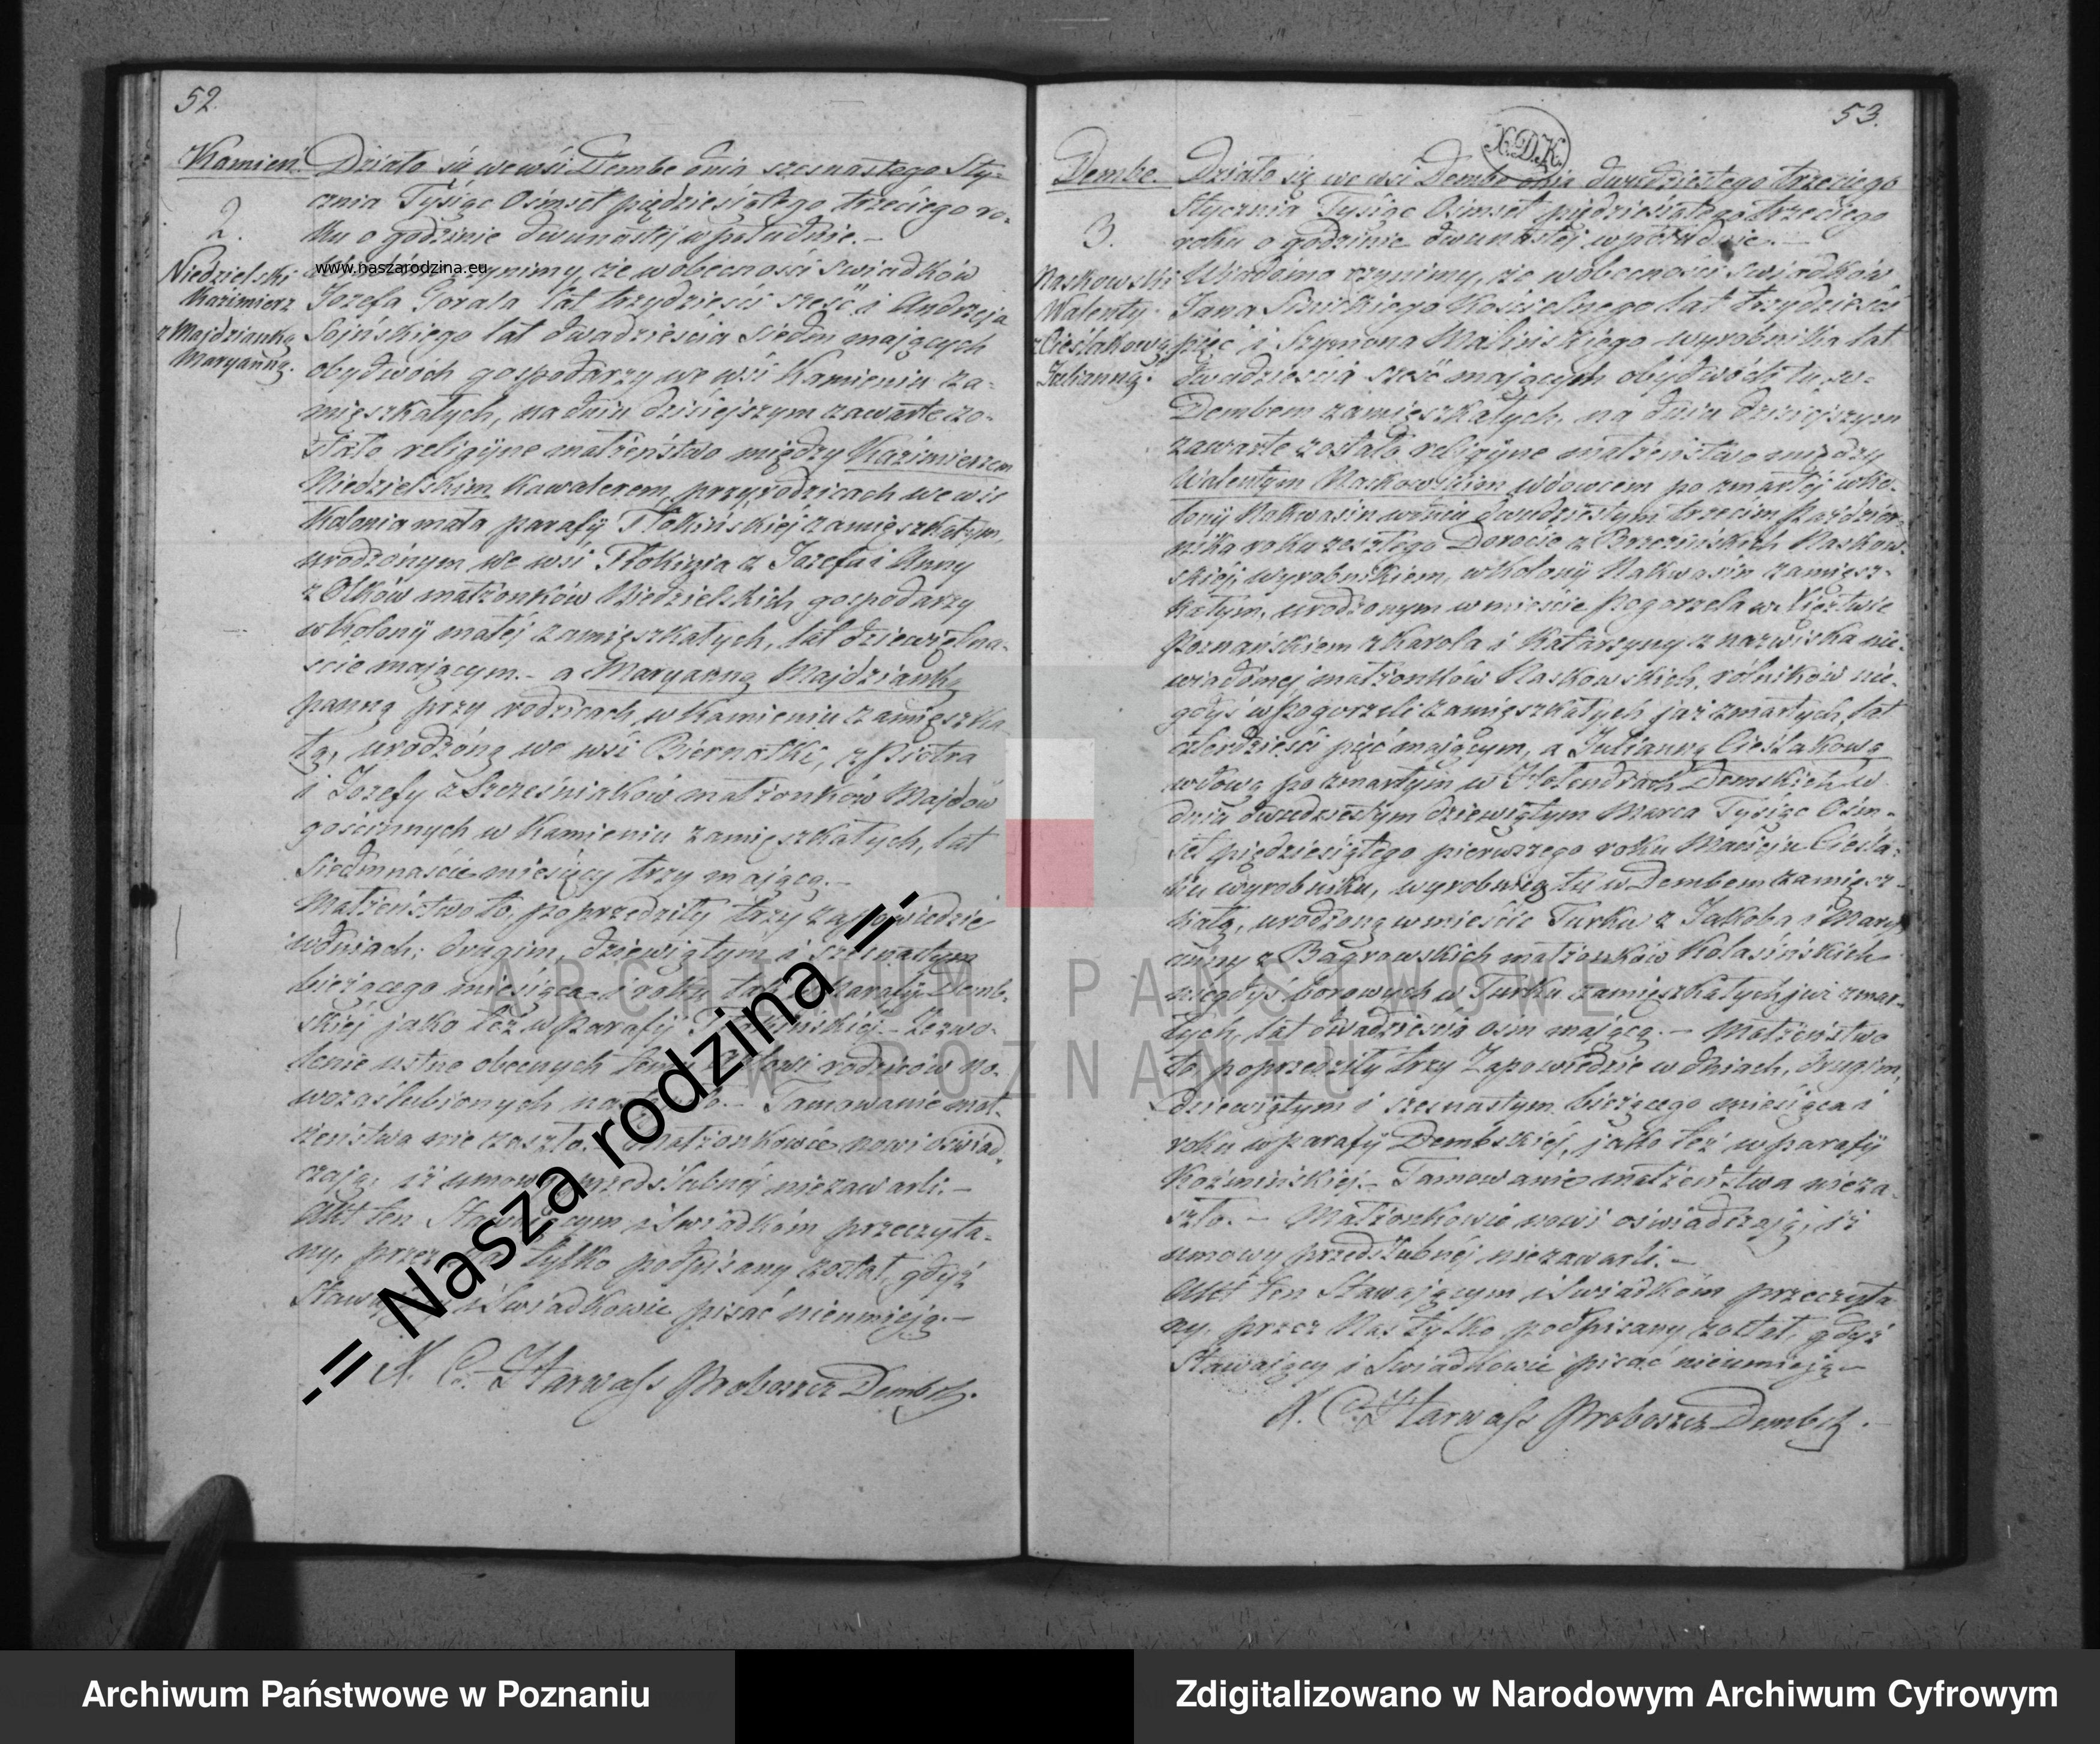 52.
Kamień.
2.
Niedzielski
Kazimierz
z Majdzianką
Maryanną.
Działo się we wsi Dembe dnia szesnastego Sty=
cznia Tysiąc Osimset pięćdziesiątego trzeciego ro-
ku o godzinie dwunastej w południe.-
www.naszarodzina.eu
czynimy, że w obecności swiadków
Jozefa Gorala lat trzydzieści sześć i Andrzeja
Sojńskiego lat dwadzieścia siedm mających
obydwóch gospodarzy we wsi Kamieniu za-
mięszkałych, na dniu dzisiejszym zawarte zo-
stało religijne małżeństwo między Kazimierzem
Niedzielskim Kawalerem, przy rodzicach we wsi
Kolonia mała parafij Tłokińskiéj zamięszkałym,
urodzonym we wsi Tłokinia z Jozefa i Anny
z Olków małżonków Niedzielskich gospodarzy
w Kolonij małej zamięszkałych, lat dziewiętna-
ście mającym.- a Maryanną Majdzianką
panną przy rodzicach w Kamieniu zamięszka
łą, urodzoną we wsi Biernatki, z Piotra
i Jozefy z Szcześniaków małżonków Majdów
gościnnych w Kamieniu zamięszkałych, lat
siedmnaście miesięcy trzy mającą.-
Małżeństwo to, poprzedziły trzy zapowiedzie
w dniach: drugim, dziewiątym i szesnastym
bieżącego miesiąca i roku tak w Parafij Demb-
skiej jako też w Parafij Tłokińskiéj.- Zezwo-
lenie ustne obecnych temu Aktowi rodziców no-
wozaślubionych nastąpiło.- Tamowanie mał-
żeństwa nie zaszło.- Małżonkowie nowi oświad-
czają, iż umowy przedślubnéj niezawarli.-
Akt ten Stawającym i Swiadkóm przeczyta-
ny, przez Nas tylko podpisany został, gdyż
Stawający i Swiadkowie pisać nieumieją.-
X. C. Harwass Proboszcz Dembsk.
53.
X.D.K.
Dembe.
3.
Raskowski
Walenty
z Cieślakową
Julianną.
Działo się we wsi Dembe dnia dwudziestego trzeciego
Stycznia Tysiąc Osimset pięćdziesiątego trzeciego
roku o godzinie dwunastéj w południe.-
Wiadomo czynimy, że w obecności swiadków
Jana Kościelnego lat trzydzieści
pięć i Szymona Malińskiego wyrobnika lat
dwadzieścia sześć mających obydwóch tu w-
Dembem zamięszkałych, na dniu dzisiejszym
zawarte zostało religijne małżeństwo między
Walentym Raskowskim wdowcem po zmarłéj w Ko-
lonij Nakwasin w dniu dwudziestym trzecim Paździer-
nika roku zeszłego Dorocie z Brzezińskich Raskow-
skiéj, wyrobnikiem, w Kolonij Nakwasin zamięsz-
kałym, urodzonym w mieście Pogorzela w Xięztwie
Poznańskiem z Karola i Katarzyny z nazwiska nie-
wiadomej małżonków Raskowskich, rólników nie-
gdyś w Pogorzeli zamięszkałych już zmarłych, lat
czterdzieści pięć mającym, a Julianną Cieślakową
wdową po zmarłym w Holendrach Demskich w
dniu dwudziestym dziewiątym Marca Tysiąc Ośm-
set pięćdziesiątego pierwszego roku Macieju Cieśla-
ku wyrobniku, wyrobnicą tu w Dembem zamięsz-
kałą, urodzoną w mieście Turku z Jakoba i Mary
anny z Bagrowskich małżonków Kolasińskich
niegdyś borowych w Turku zamięszkałych już zmar-
łych, lat dwadzieścia osm mającą.- Małżeństwo
to poprzedziły trzy Zapowiedzie w dniach, drugim,
dziewiątym i szesnastym bieżącego miesiąca i
roku w parafij Dembskiéj, jako też w parafij
Koźmińskiéj.- Tamowanie małżeństwa nieza-
szło.- Małżonkowie nowi oświadczają, iż
umowy przedślubnéj niezawarli.-
Akt ten Stawającym i Swiadkóm przeczyta
ny, przez Nas tylko podpisany został, gdyż
Stawający i Swiadkowie pisać nieumieją.-
X. C. Harwass Proboszcz Dembsk.
.:= Nasza rodzina =:.
ARCHIWUM PAŃSTWOWE
W POZNANIU
Archiwum Państwowe w Poznaniu
Zdigitalizowano w Narodowym Archiwum Cyfrowym